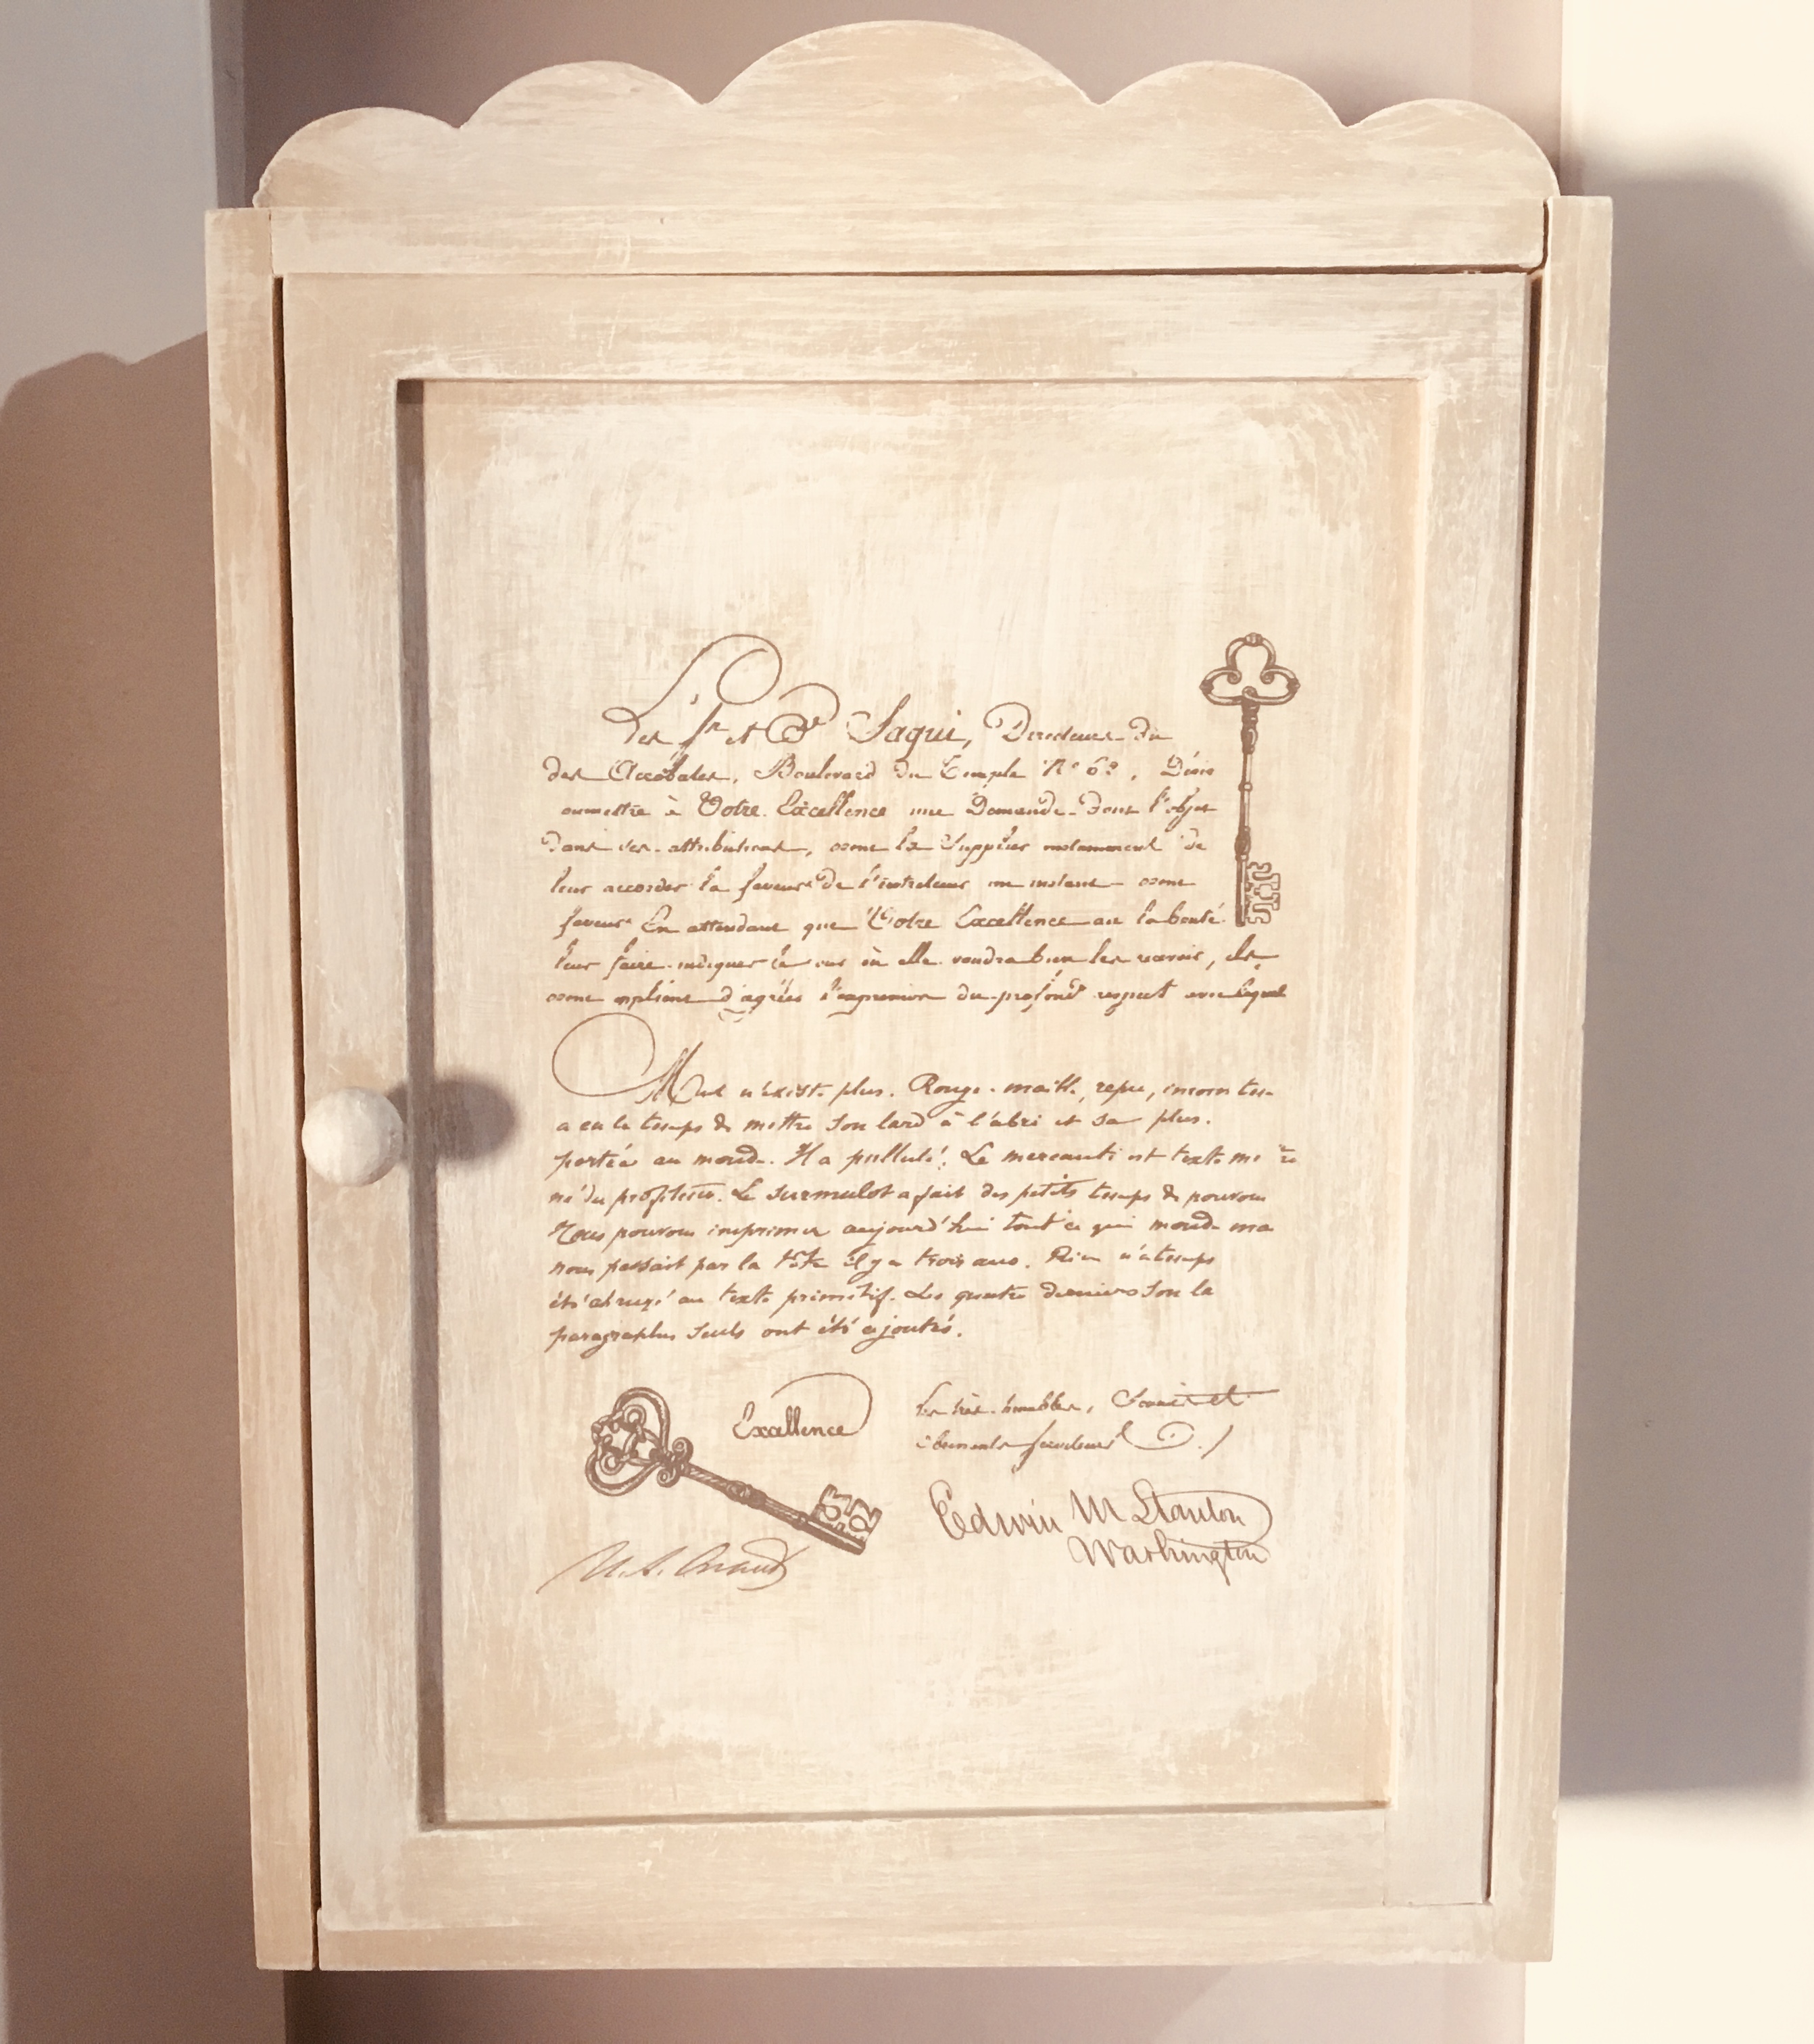 Les Sr et De Saqui, Directeurs du
des Acrobates, Boulevard du Temple No 62, Désir
oumettre à Votre Excellence une Demande dont l'objet
dans ses attributions, osent la Supplier instamment de
leur accorder la faveur de l'entretenir un instant osent
faveur En attendant que Votre Excellence ait la bonté
leur faire indiquer le où elle voudra bien les recevoir, ils
osent d'agréer l'expression du profond respect avec lequel
n'existe plus. Rouge-maille, repu,
a eu le temps de mettre son lard à l'abri et sa plus.
portée au monde. Il a pullulé! Le mercanti est texte me re
né du profiteur. Le surmulot a fait des petits temps de pouvons
Nous pouvons imprimer aujourd'hui tout ce qui monde ma
nous passait par la tête il y a trois ans. Rien n'a temps
été abrugé au texte primitif. Les quatre derniers son la
paragraphes seuls ont été ajoutés.
Excellence
Les très humbles,
obéissants serviteurs
Edwin M Stanton
Washington
U. S. Grant